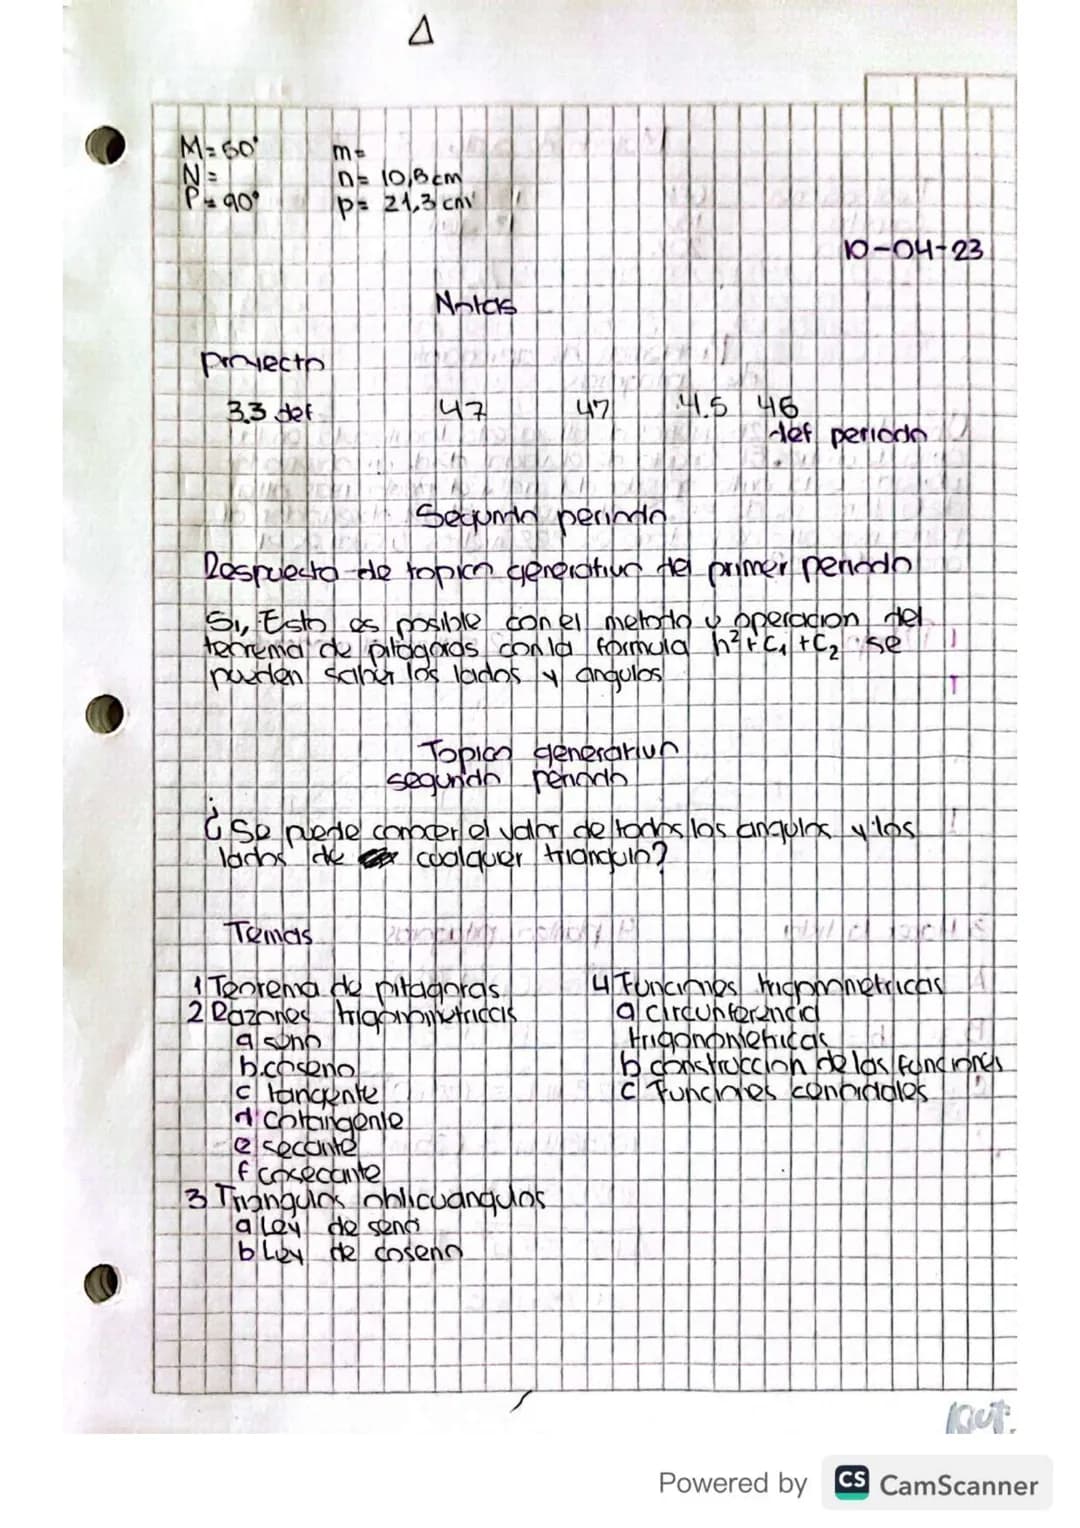 Δ
M=60° m=
N= n= 10,8cm
P=90° p= 21,3 cm
10-04-23
Notas
proyecto
3.3 def 47 47 4.5 46
def periodo
Segundo periodo
Respuesta de topico generativo del primer periodo
Si, Esto es posible con el metodo y operacion del
teorema de pitagoras con la formula h²+C₁+C₂ se
pueden saber los lados y angulos
Topico generativo
segundo periodo
¿Se puede conocer el valor de todos los angulos y los
lados de cualquer triangulo?
Temas
1 Teorema de pitagoras
2 Razones trigonometricas
a seno
b.coseno
c tangente
d cotangente
e secante
f cosecante
3 Triangulos oblicuangulos
a Ley de seno
b Ley de coseno
4 Funciones trigonometricas
a circunferencia
trigonometricas
b construccion de las funciones
c Funciones
Powered by CS CamScanner